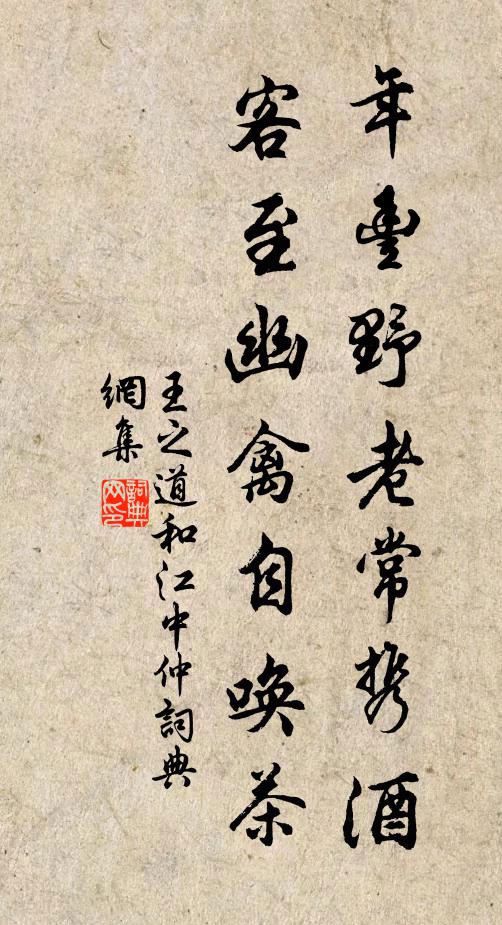 年豊野老常携酒
客至幽禽自喚茶
王之道和江中仲詞典
網集
詞典
网印